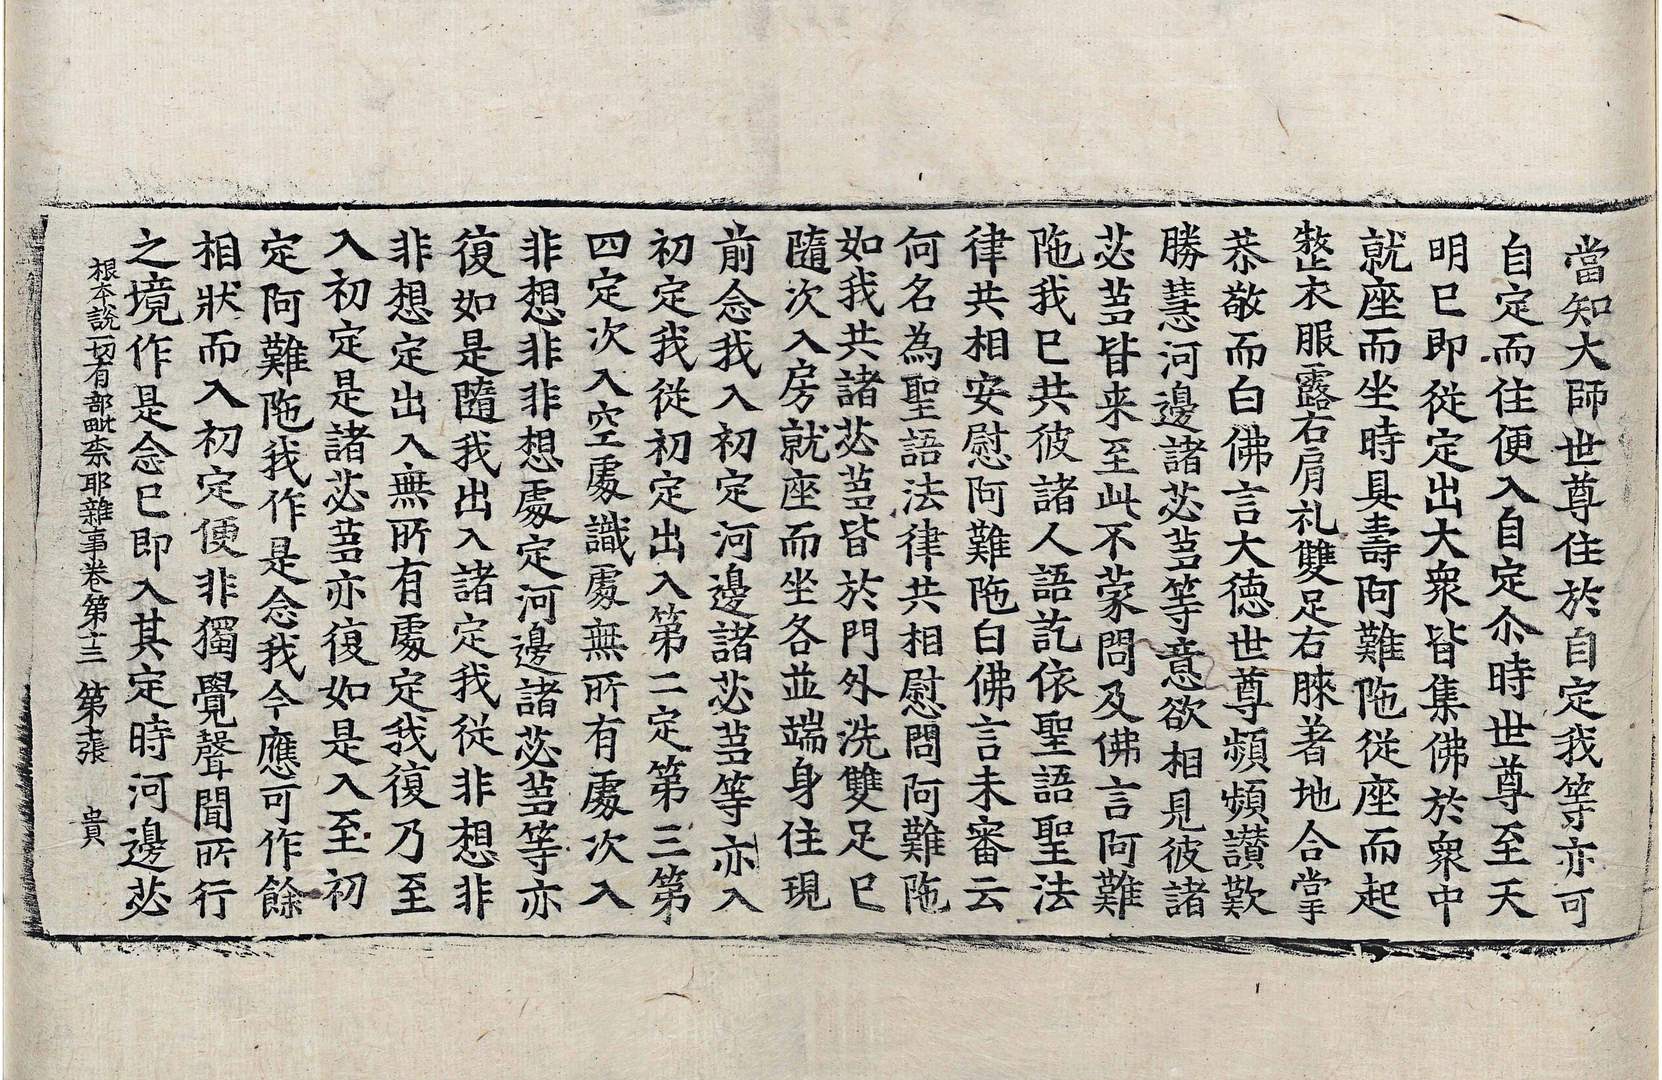 當知大師世尊住於自定我等亦可
自定而住便入自定尒時世尊至天
明已即從定出大衆皆集佛於衆中
就座而坐時具壽阿難陁從座而起
整衣服露右肩礼雙足右膝著地合掌
恭敬而白佛言大德世尊頻頻讃歎
勝慧河邊諸苾芻等意欲相見彼諸
苾芻皆来至此不蒙問及佛言阿難
陁我已共彼諸人語訖依聖語聖法
律共相安慰阿難陁白佛言未審云
何名為聖語法律共相慰問阿難陁
如我共諸苾芻皆於門外洗雙足已
隨次入房就座而坐各並端身住現
前念我入初定河邊諸苾芻等亦入
初定我從初定出入第二定第三第
四定次入空處識處無所有處次入
非想非非想處定河邊諸苾芻等亦
復如是隨我出入諸定我從非想非
非想定出入無所有處定我復乃至
入初定是諸苾芻亦復如是入至初
定阿難陁我作是念我今應可作餘
相狀而入初定便非獨覺聲聞所行
之境作是念已即入其定時河邊苾
根本說一切有部毗柰耶雜事卷第十三 第十張 貴